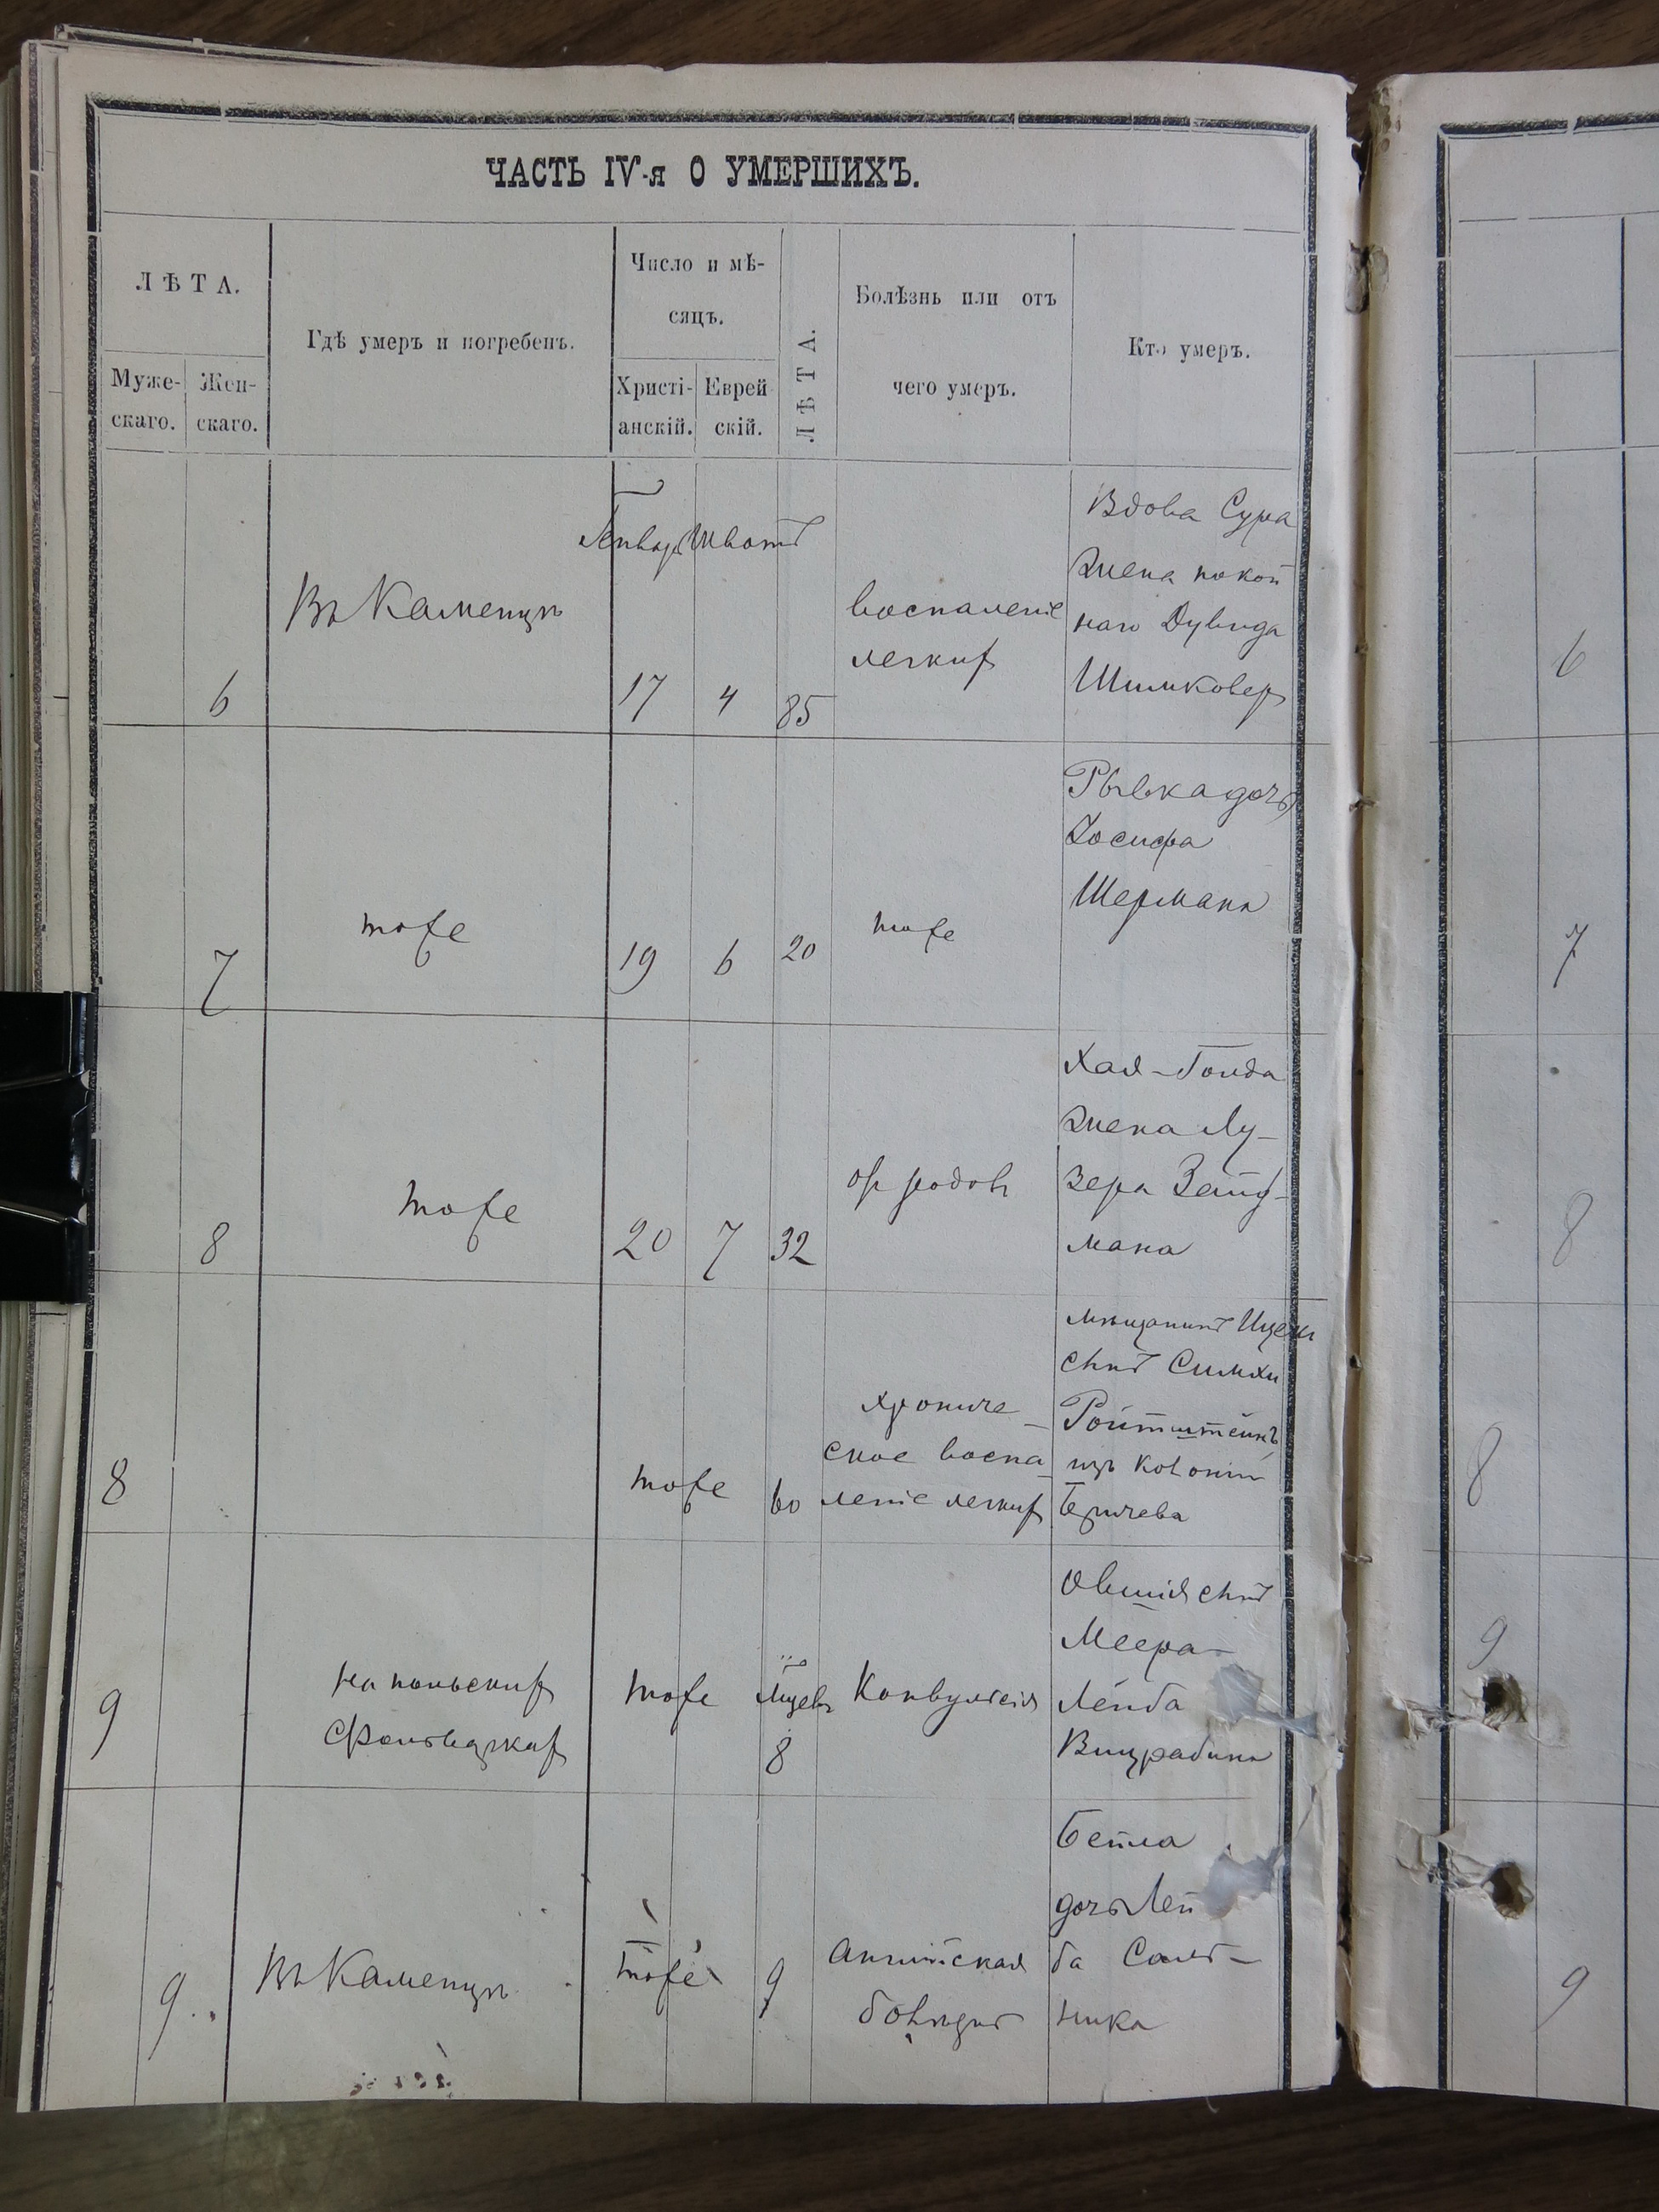 ЧАСТЬ IV-я О УМЕРШИХЪ.
ЛѢТА.
Муже-
скаго.
Жен-
скаго.
Гдѣ умеръ и погребенъ.
Число и мѣ-
сяцъ.
Христі-
анскій.
Еврей
скій.
ЛѢТА.
Болѣзнь или отъ
чего умеръ.
Кто умеръ.
6
Въ Каменцѣ
Январ
17
Шватъ
4
85
воспаленіе
легкихъ
Вдова Сура
жена покой
наго Дувида
Шимковер
6
7
тоже
19
6
20
тоже
Рывка дочь
Іосифа
Шермана
7
8
тоже
20
7
32
отъ родовъ
Хая-Гольда
жена Лу-
зера Зейд-
мана
8
8
тоже
60
хрониче-
ское воспа-
леніе легкихъ
мѣщанинъ Ицекъ
сынъ Симхи
Ройтштейнъ
изъ Колоніи
8
9
на польскихъ
фольваркахъ
тоже
мѣсяцевъ
8
Конвульсія
Овшія сынъ
Меера-
Лейба
9
9
Въ Каменцѣ
тоже
9
Англійская
болѣзнь
Бейла
дочь Лей
ба Соль-
ника
9